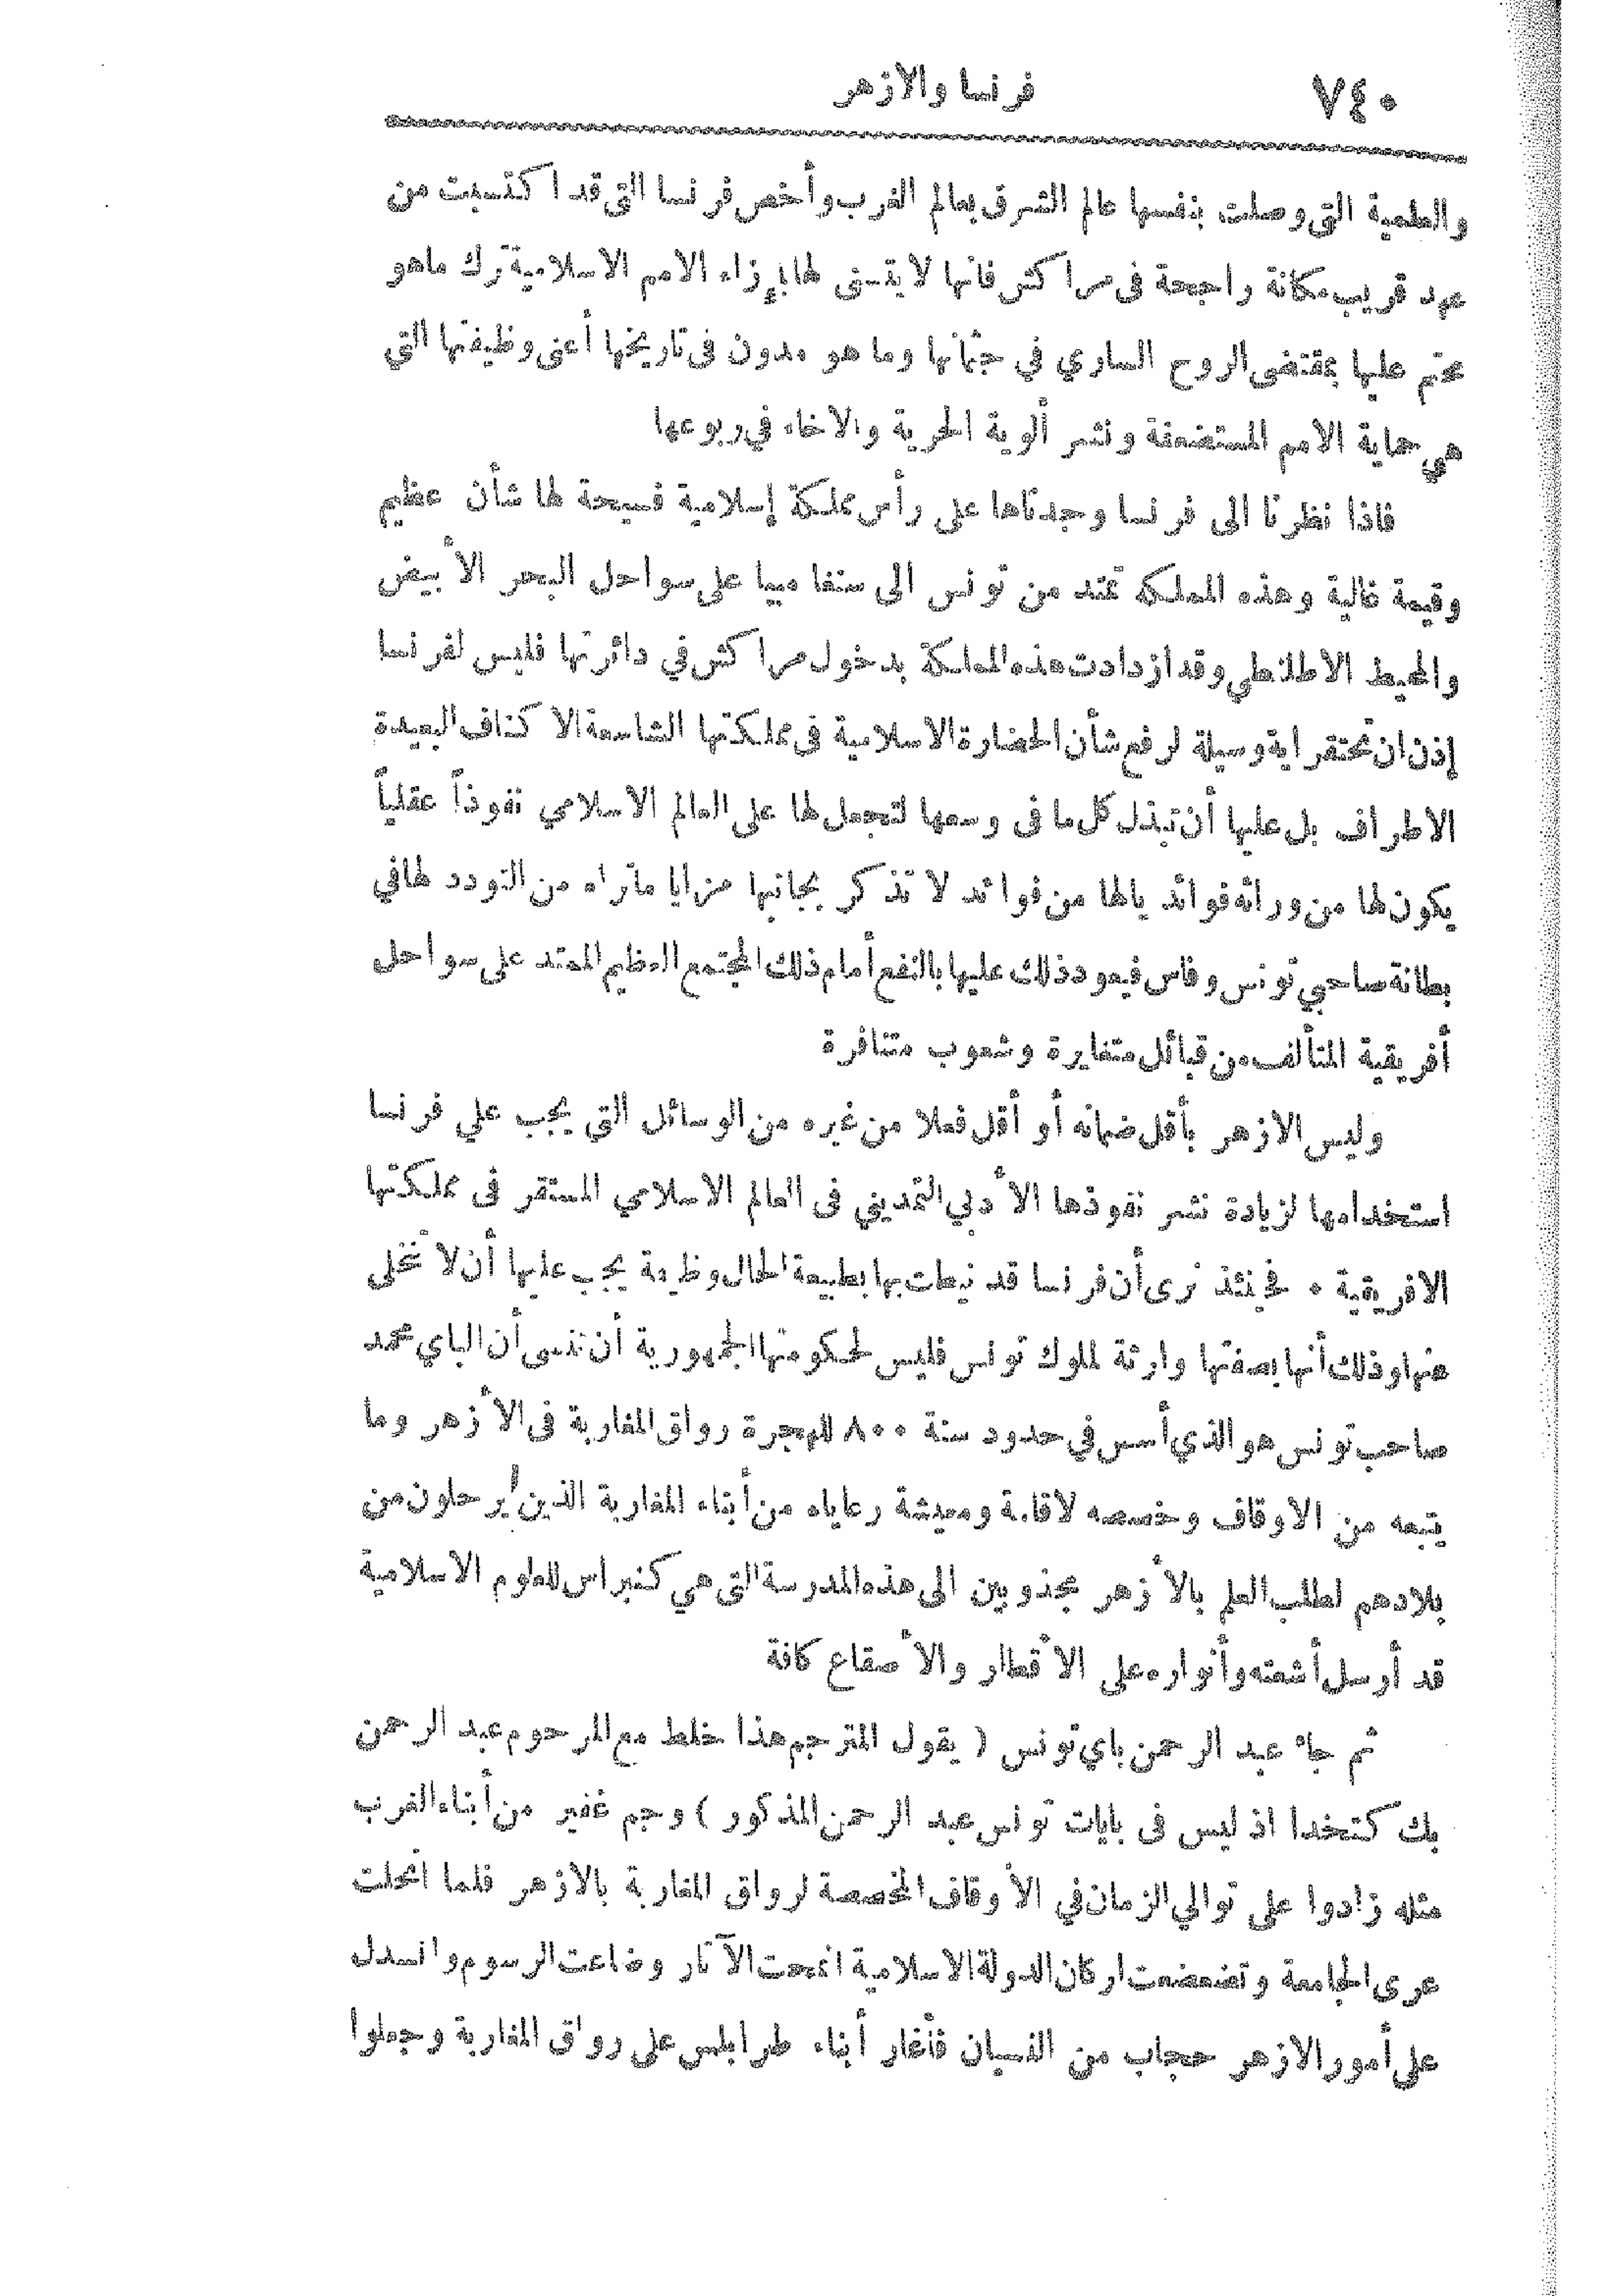 ٧٤٠
فرنسا والازهر
والعلمية التي وصلت بنفسها عالم الشرق بعالم الغرب وأخص فرنسا التي قد اكتسبت من
عهد قريب مكانة راجحة في مراكش فانها لا يتسنى لها بإزاء الامم الاسلامية ترك ماهو
محتم عليها بمقتضى الروح الساري في جثمانها وما هو مدون في تاريخها أعني وظيفتها التي
هي حماية الامم المستضعفة ونشر ألوية الحرية والاخاء في ربوعها
فاذا نظرنا الى فرنسا وجدناها على رأس مملكة إسلامية فسيحة لها شأن عظيم
وقيمة غالية وهذه المملكة تمتد من تونس الى سنغامبيا على سواحل البحر الأبيض
والمحيط الاطلانطي وقد ازدادت هذه المملكة بدخول مراكش في دائرتها فليس لفرنسا
إذن ان تحتقر اية وسيلة لرفع شأن الحضارة الاسلامية في مملكتها الشاسعة الاكناف البعيدة
الاطراف بل عليها أن تبذل كل ما في وسعها لتجعل لها على العالم الاسلامي نفوذاً عقلياً
يكون لها من ورائه فوائد يالها من فوائد لا تذكر بجانبها مزايا ماتراه من التودد لها في
بطانة صاحبي تونس وفاس فيعود ذلك عليها بالنفع أمام ذلك المجتمع العظيم الممتد على سواحل
أفريقية المتألف من قبائل متغايرة وشعوب متنافرة
وليس الازهر بأقل ضمانه أو أقل فعلا من غيره من الوسائل التي يجب علي فرنسا
استخدامها لزيادة نشر نفوذها الأدبي التمديني في العالم الاسلامي المستقر في مملكتها
الافريقية ٠ فحينئذ نرى أن فرنسا قد نيطت بها بطبيعة الحال وظيفة يجب عليها أن لا تتخلى
عنها وذلك أنها بصفتها وارثة لملوك تونس فليس لحكومتها الجمهورية أن تنسى أن الباي محمد
صاحب تونس هو الذي أسس في حدود سنة ٨٠٠ للهجرة رواق المغاربة في الأزهر وما
يتبعه من الاوقاف وخصصه لاقامة ومعيشة رعاياه من أبناء المغاربة الذين يرحلون من
بلادهم لطلب العلم بالأزهر مجذوبين الى هذه المدرسة التي هي كنبراس للعلوم الاسلامية
قد أرسل أشعته وأنواره على الأقطار والأصقاع كافة
ثم جاء عبد الرحمن باي تونس ( يقول المترجم هذا خلط مع المرحوم عبد الرحمن
بك كتخدا اذ ليس في بايات تونس عبد الرحمن المذكور ) وجم غفير من أبناء الغرب
مثله زادوا على توالي الزمان في الأوقاف المخصصة لرواق المغاربة بالازهر فلما انحلت
عرى الجامعة وتضعضعت اركان الدولة الاسلامية انمحت الآثار وضاعت الرسوم وانسدل
على أمور الازهر حجاب من النسيان فأغار أبناء طرابلس على رواق المغاربة وجعلوا